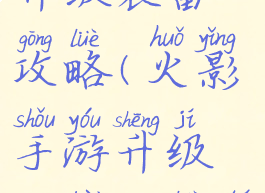 gōng lüè huǒ yǐng
攻略(火影
shǒu yóu shēng jí
手游升级